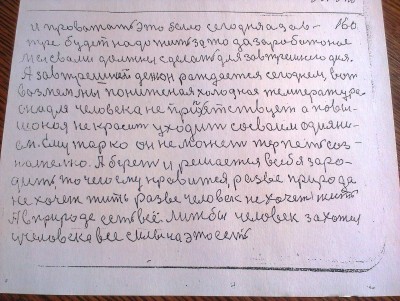 и провожать это было сегодня а зав- 160
тре будет надо жить за то да заработанное
мы с вами должны сделать для завтрешнего дня.
А завтрешней денон рождается сегодне, вот
возмем мы пониженая холодная температура
она для человека не приветствует а повы-
шоная не красит уходит со своим одияни-
ем. Ему жарко он не может терпеть соз-
нательно. А берет и решается в себя заро-
дить то чего ему нравится, разве природа
не хочеж жить разве человек не хочет жить
А в природе есть всё. Лиж бы человек захотел
у человека все силы на это есть